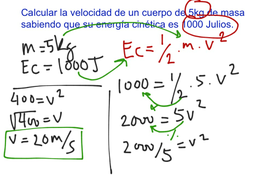 Calcular la velocidad de un cuerpo de 5kg de masa
sabiendo que su energía cinética es 1000 Julios.
m=5kg
Ec=1000J
Ec=1/2.m.v²
400=v²
√400=v
v=20m/s
1000=1/2.5.v²
2000=5v²
2000/5=v²